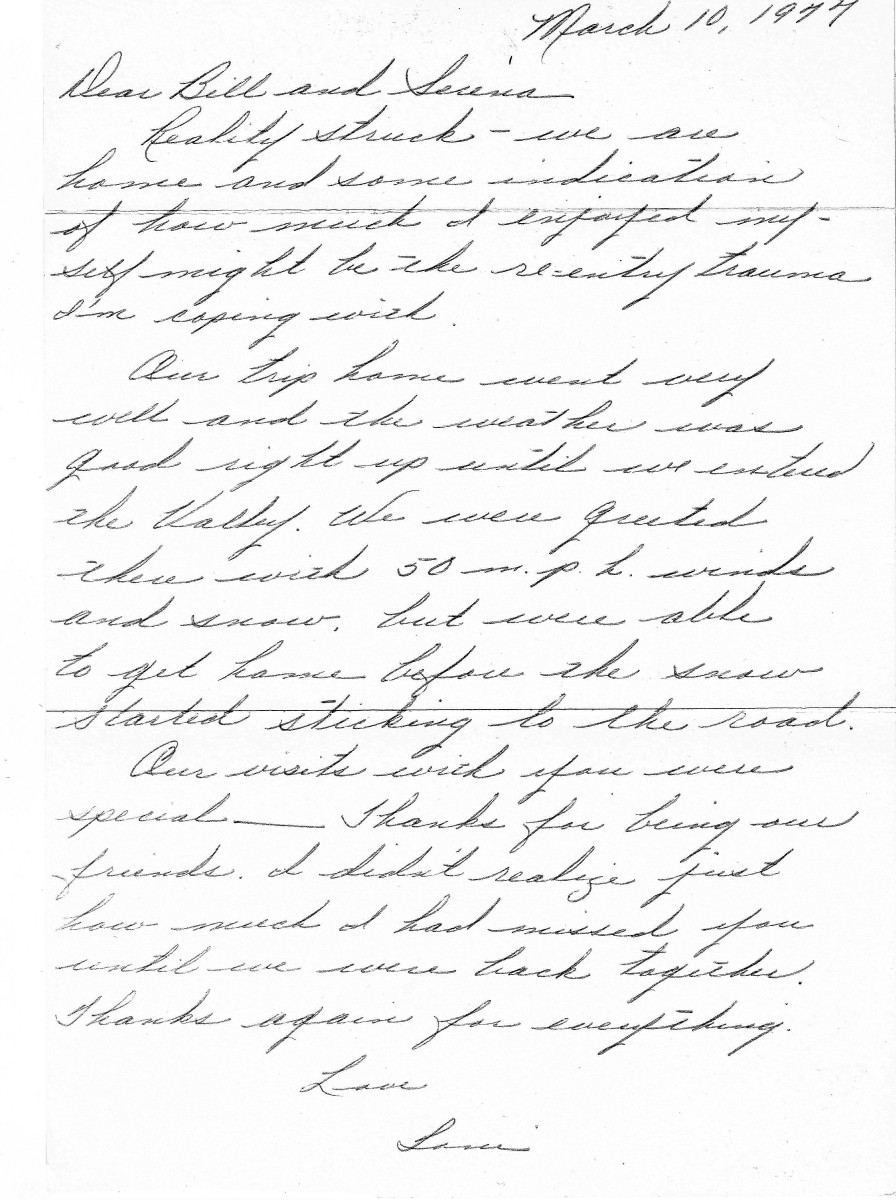 March 10, 1977
Dear Bill and Serena
Reality struck - we are
home and some indication
of how much I enjoyed my-
self might be the re-entry trauma
I'm coping with.
Our trip home went very
well and the weather was
good right up until we entered
the Valley. We were greeted
there with 50 m.p.h. winds
and snow, but were able
to get home before the snow
started sticking to the road.
Our visits with you were
special — Thanks for being our
friends. I didn't realize just
how much I had missed you
until we were back together.
Thanks again for everything.
Love